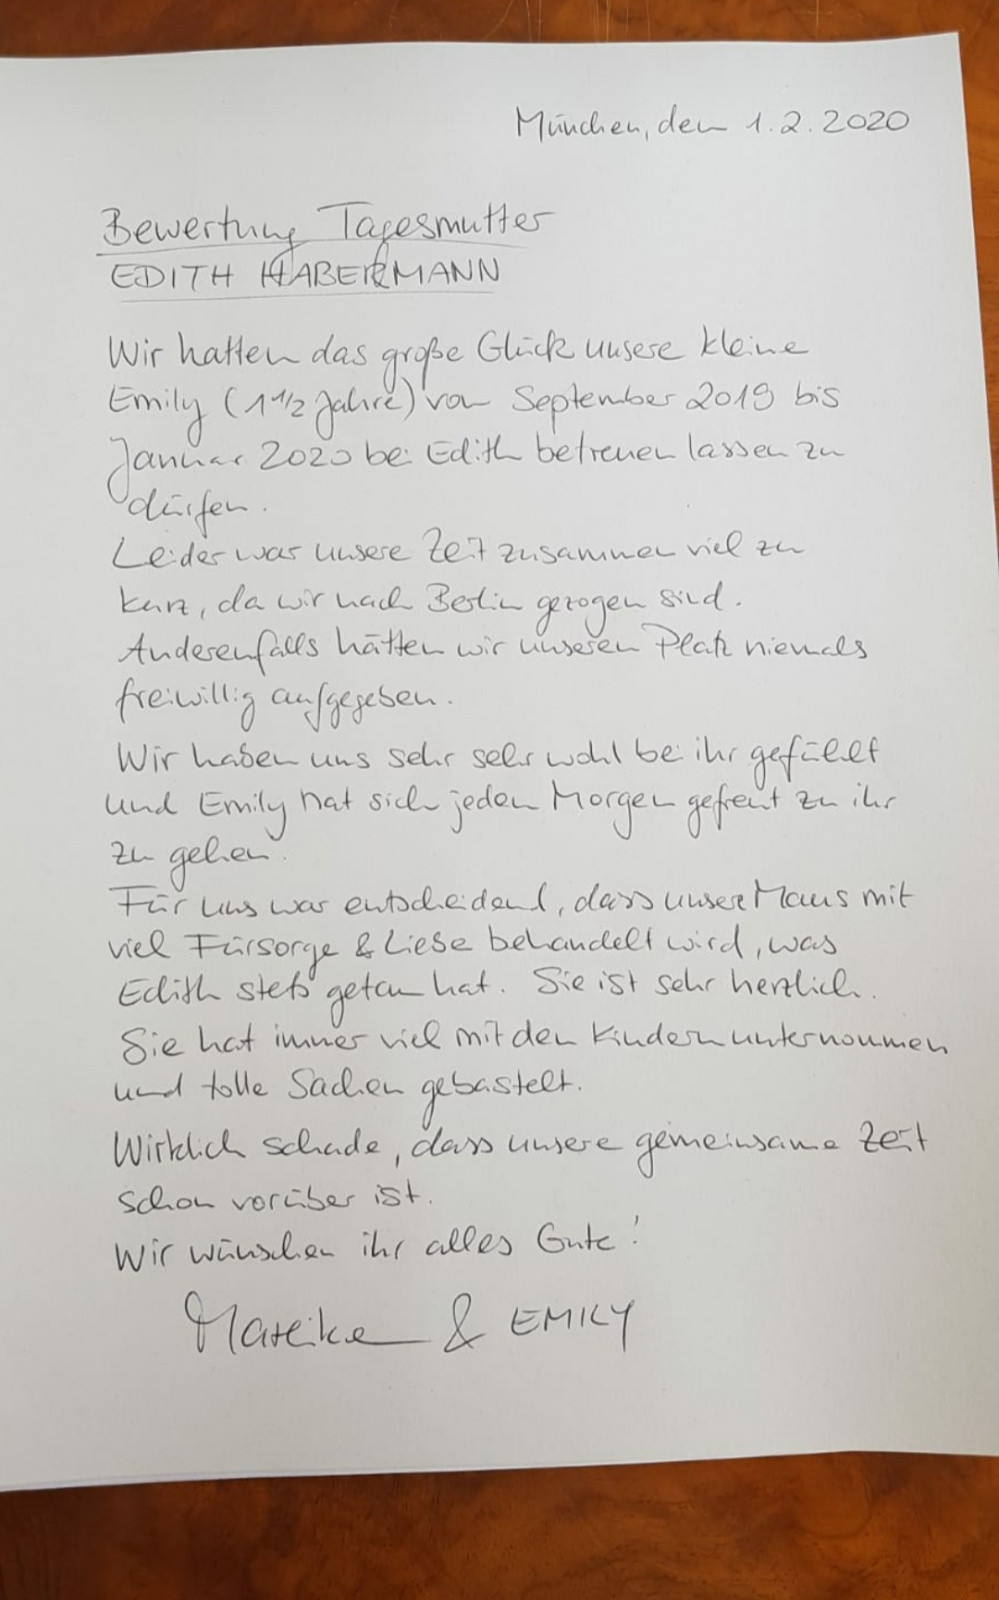 München, den 1.2.2020
Bewertung Tagesmutter
EDITH HABERMANN
Wir hatten das große Glück unsere kleine
Emily (1 1/2 Jahre) von September 2019 bis
Januar 2020 bei Edith betreuen lassen zu
dürfen.
Leider war unsere Zeit zusammen viel zu
kurz, da wir nach Berlin gezogen sind.
Anderenfalls hätten wir unseren Platz niemals
freiwillig aufgegeben.
Wir haben uns sehr sehr wohl bei ihr gefühlt
und Emily hat sich jeden Morgen gefreut zu ihr
zu gehen.
Für uns war entscheidend, dass unsere Maus mit
viel Fürsorge & Liebe behandelt wird, was
Edith stets getan hat. Sie ist sehr herzlich.
Sie hat immer viel mit den Kindern unternommen
und tolle Sachen gebastelt.
Wirklich schade, dass unsere gemeinsame Zeit
schon vorüber ist.
Wir wünschen ihr alles Gute!
Mareike & EMILY